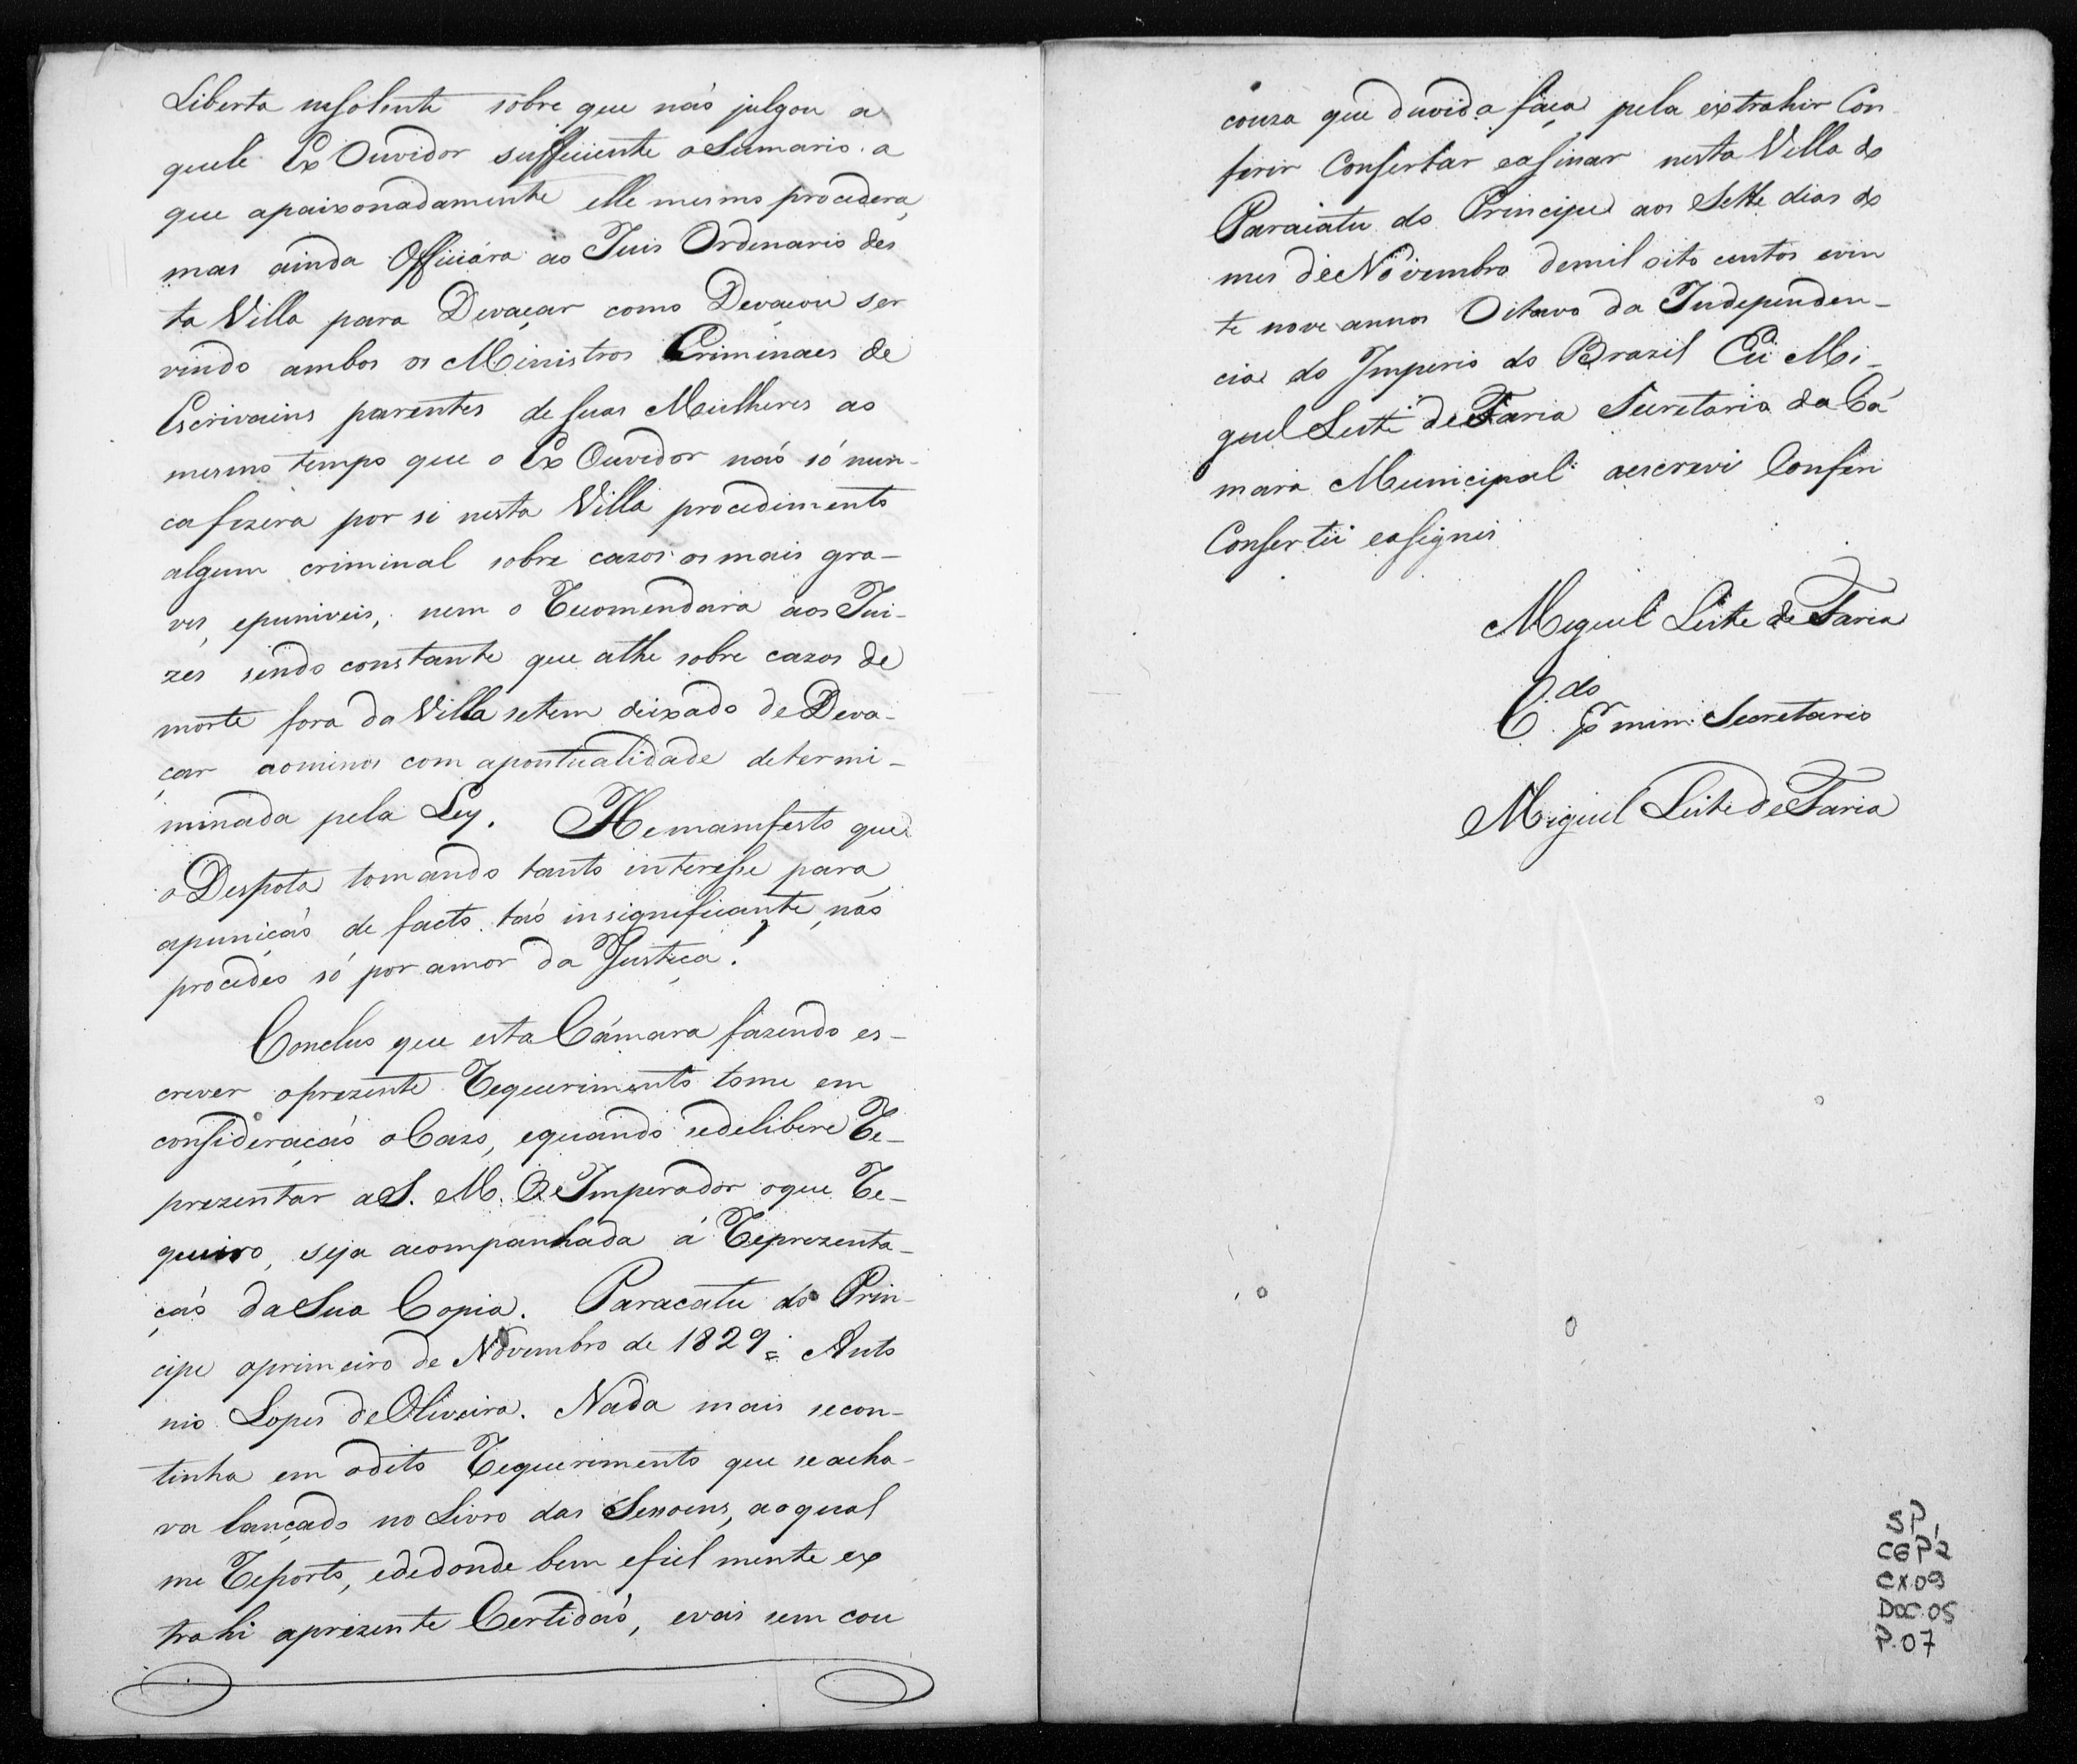 Liberta insolente sobre que naõ julgou a
quele Ex Ouvidor sufficiente o Sumario a
que apaixonadamente elle mesmo procedera,
mas ainda Officiára ao Juis Ordenario des
ta Villa para Devaçar como Devaçou ser
vindo ambos os Ministros Criminaes de
Escrivains parentes de suas Mulheres ao
mesmo tempo que o Ex Ouvedor naõ só nun-
ca fizera por si nesta Villa procedimento
algum criminal sobre cazos os mais gra-
ves, epuniveis, nem o Recomendara aos Jui-
zes sendo constante que athe sobre cazos de
morte fora da Villa setem deixado de Deva-
çar aomenos com apontualidade determi-
minada pela Ley. He manifesto que
o Despota tomando tanto interesse para
apuniçaõ de facto taõ insignificante, naõ
procedeo só por amor da Justiça.
Concluo que esta Cámara fazendo es-
crever oprezente Requerimento tome em
consideraçaõ o Cazo, equando sedelibere Re-
prezentar a S. M. O Imperador oque Re-
queiro, seja acompanhada á Reprezenta-
çaõ da Sua Copia. Paracatu do Prin-
cipe oprimeiro de Novembro de 1829 = Anto
nio Lopes de Oliveira. Nada mais secon-
tinha em odito Requerimento que se acha-
va lançado no Livro das Sessoens, ao qual
me Reporto, ededonde bem efiel mente ex
trahi aprezente Certidaõ, evai sem cou
couza que duvida faça pela extrahir Con
ferir Consertar easinar nesta Villa do
Paracatu do Principe aos Sette dias do
mes de Novembro demil oito centos evin
te nove annos Oitavo da Independen-
cia do Imperio do Brazil Eu Mi-
guel Leite de Faria Secretario da Cá
mara Municipal aescrevi Conferi
Consertei easignei
Miguel Leite de Faria
C.do pr mim Secretario
Miguel Leite de Faria
SP,
CGP2
CX.09
DOC.05
P.07